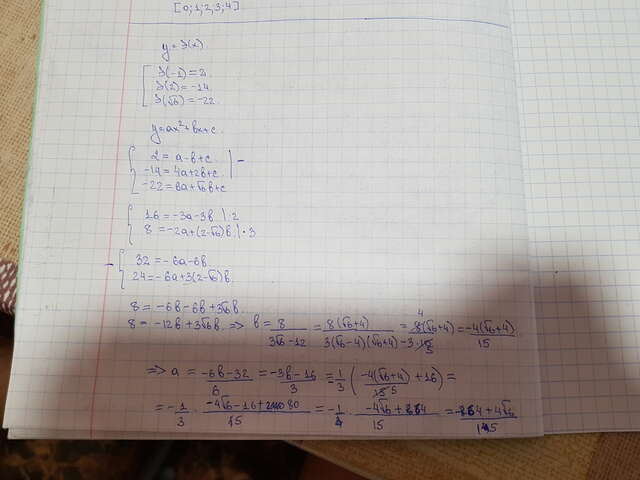 [0;1;2,3;4]
y = f(x)
f(-1) = 2
f(2) = -14
f(√6) = -22
y = ax²+bx+c
2 = a-b+c | -
-14 = 4a+2b+c
-22 = 6a+√6b+c
16 = -3a-3b |·2
8 = -2a+(2-√6)b |·3
- 32 = -6a-6b
24 = -6a+3(2-√6)b
8 = -6b-6b+3√6b
8 = -12b+3√6b => b = 8/(3√6-12) = 8(√6+4)/(3(√6-4)(√6+4)) = 8(√6+4)/(-3·10) = -4(√6+4)/15
=> a = (-6b-32)/6 = (-3b-16)/3 = -1/3 (-4(√6+4)/15 + 16) =
= -1/3 · /15 = · /15 =